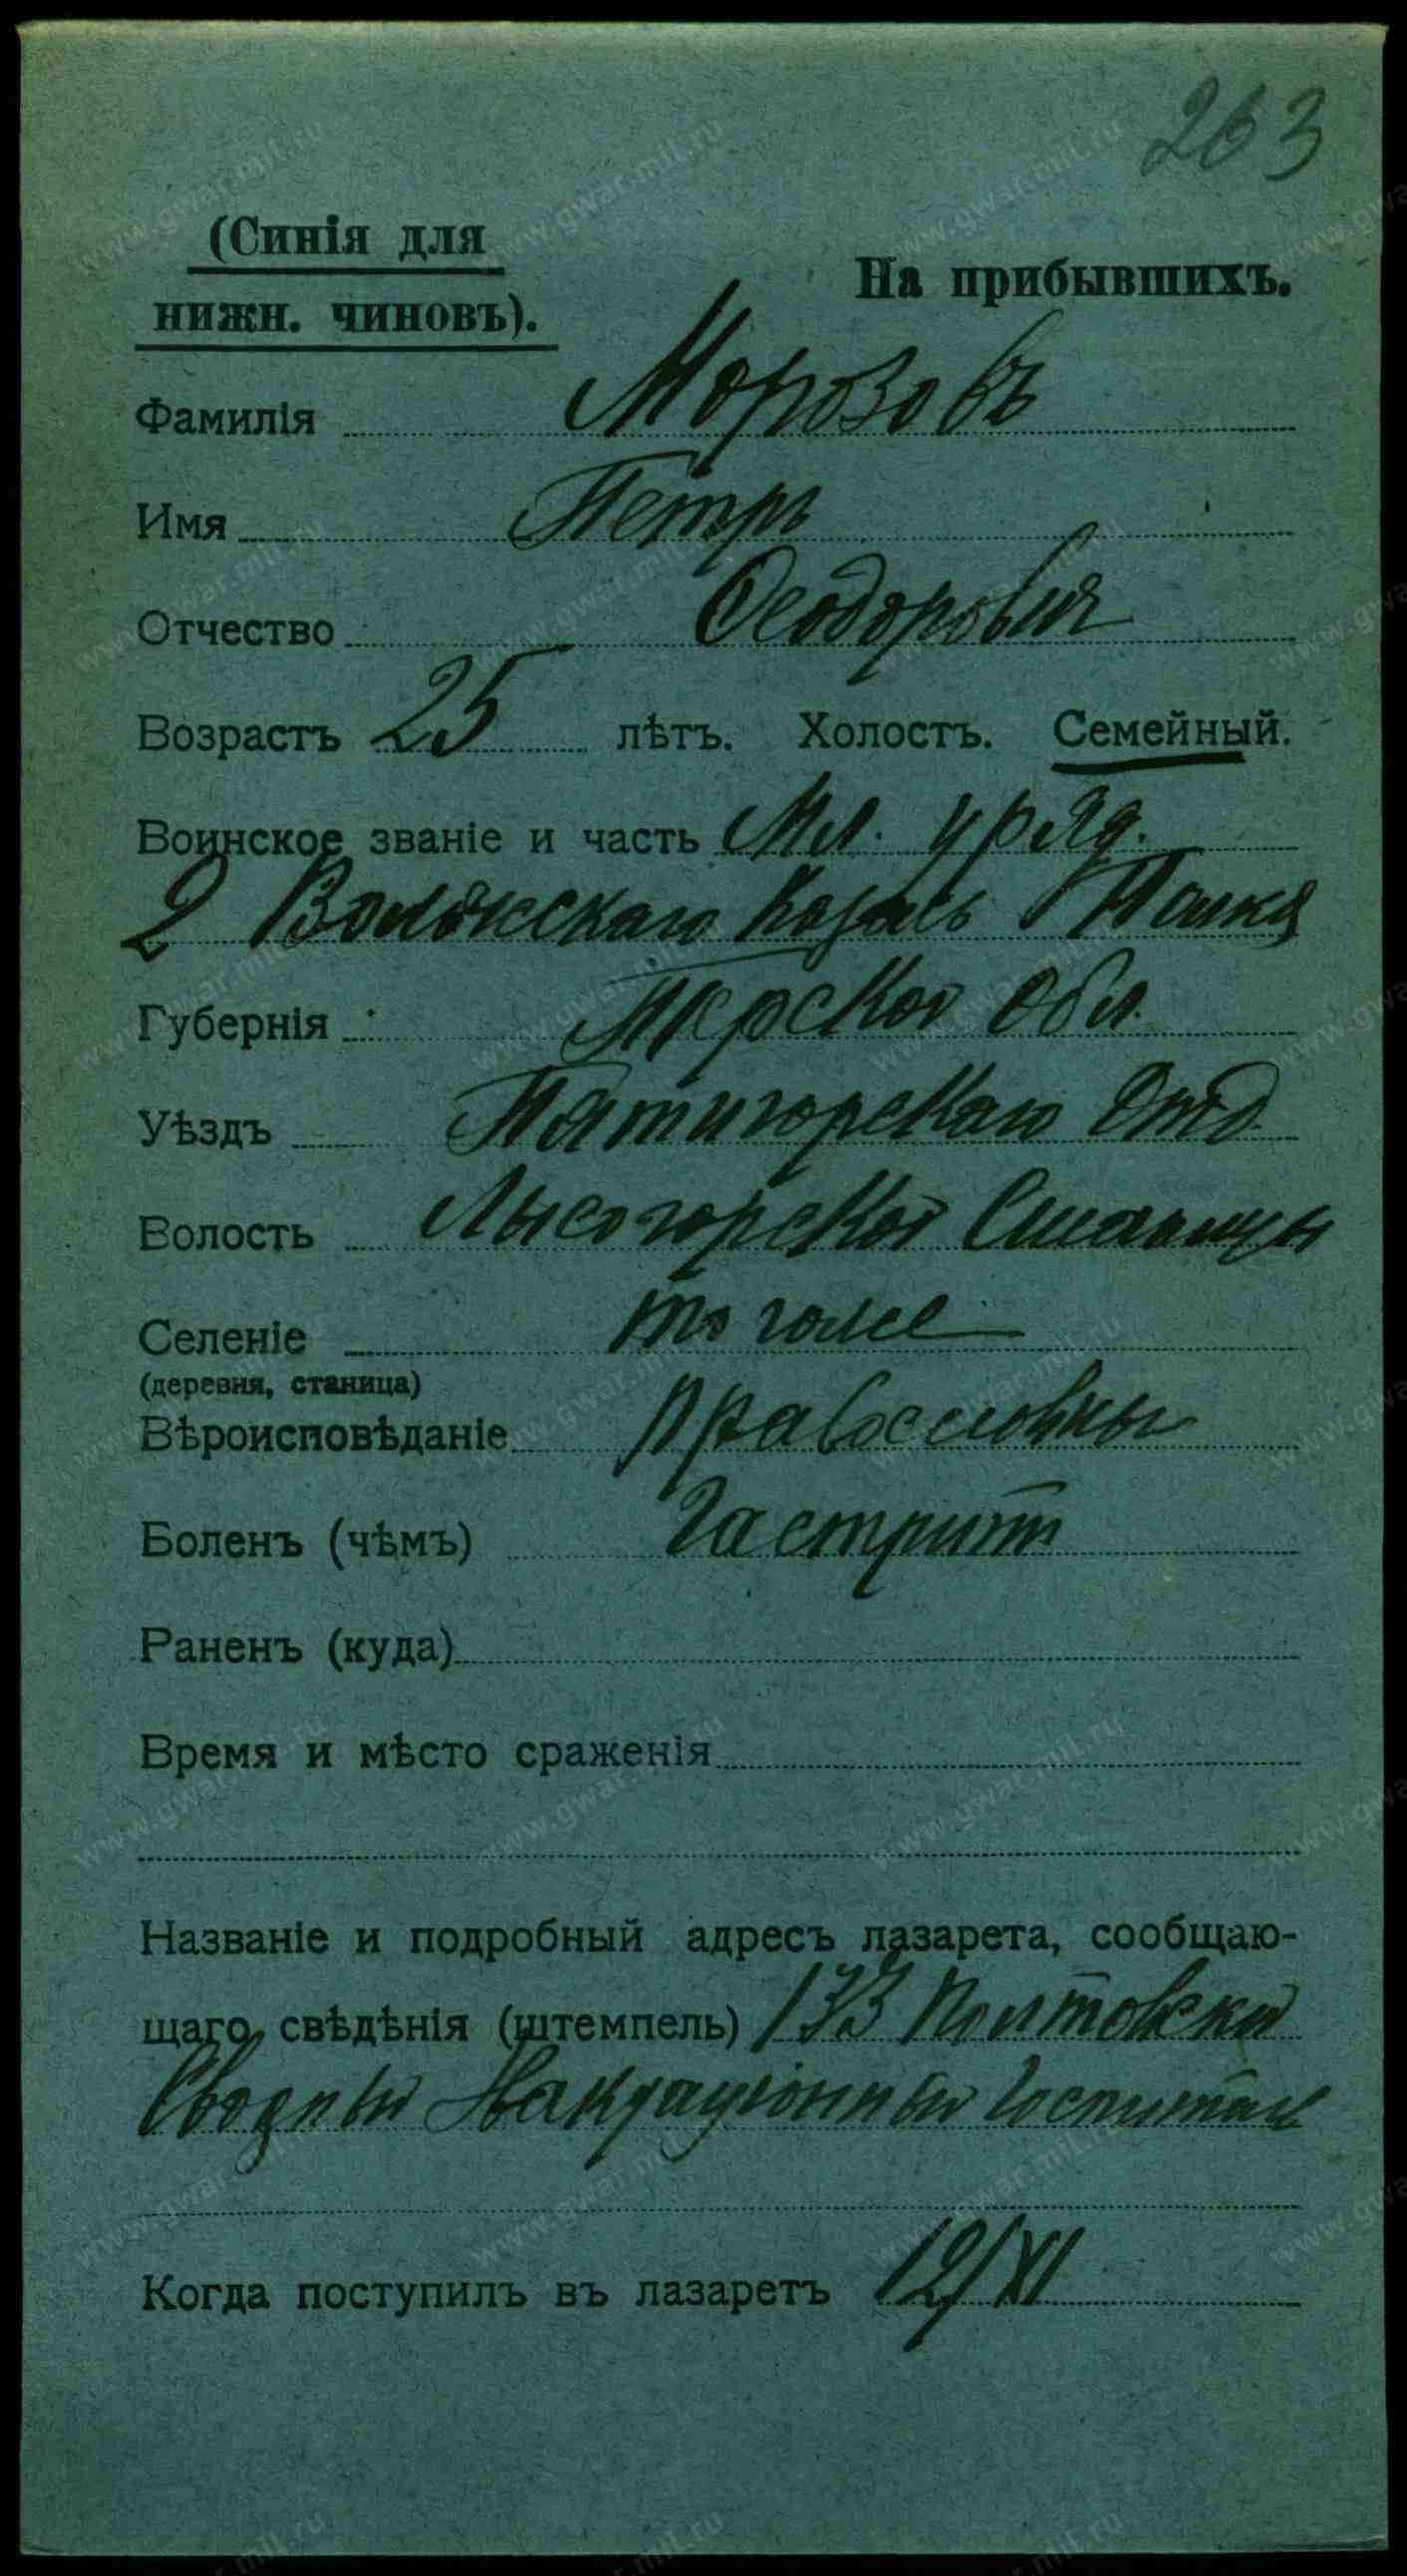 263
(Синія для
нижн. чиновъ).
На прибывшихъ.
Фамилія Морозовъ
Имя Петръ
Отчество Ѳеодорович
Возрастъ 25 лѣтъ. Холостъ. Семейный.
Воинское званіе и часть Мл. уряд.
2 Волжскаго Казач Полка
Губернія Терской Обл.
Уѣздъ Пятигорскаго Отд
Волость Лысогорской Станицы
Селеніе того же
(деревня, станица)
Вѣроисповѣданіе Православны
Боленъ (чѣмъ) Гастрит
Раненъ (куда)
Время и мѣсто сраженія
Названіе и подробный адресъ лазарета, сообщаю-
щаго свѣдѣнія (штемпель) 133
Сводный Госпитал
Когда поступилъ въ лазаретъ 12/XI